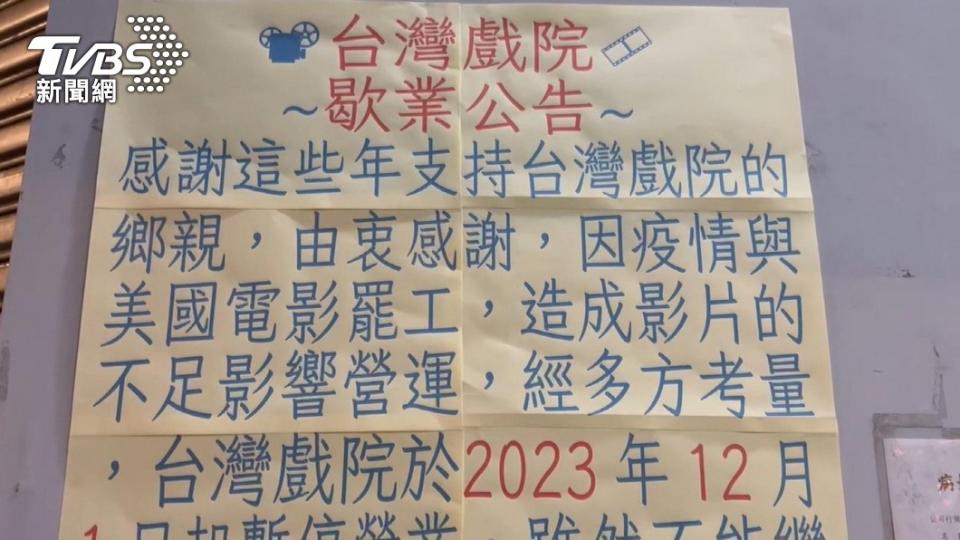 TVBS
新聞網
台灣戲院
~歇業公告~
感謝這些年支持台灣戲院的
鄉親，由衷感謝，因疫情與
美國電影罷工，造成影片的
不足影響營運，經多方考量
，台灣戲院於2023年12月
1日起暫停營業，雖然不能繼